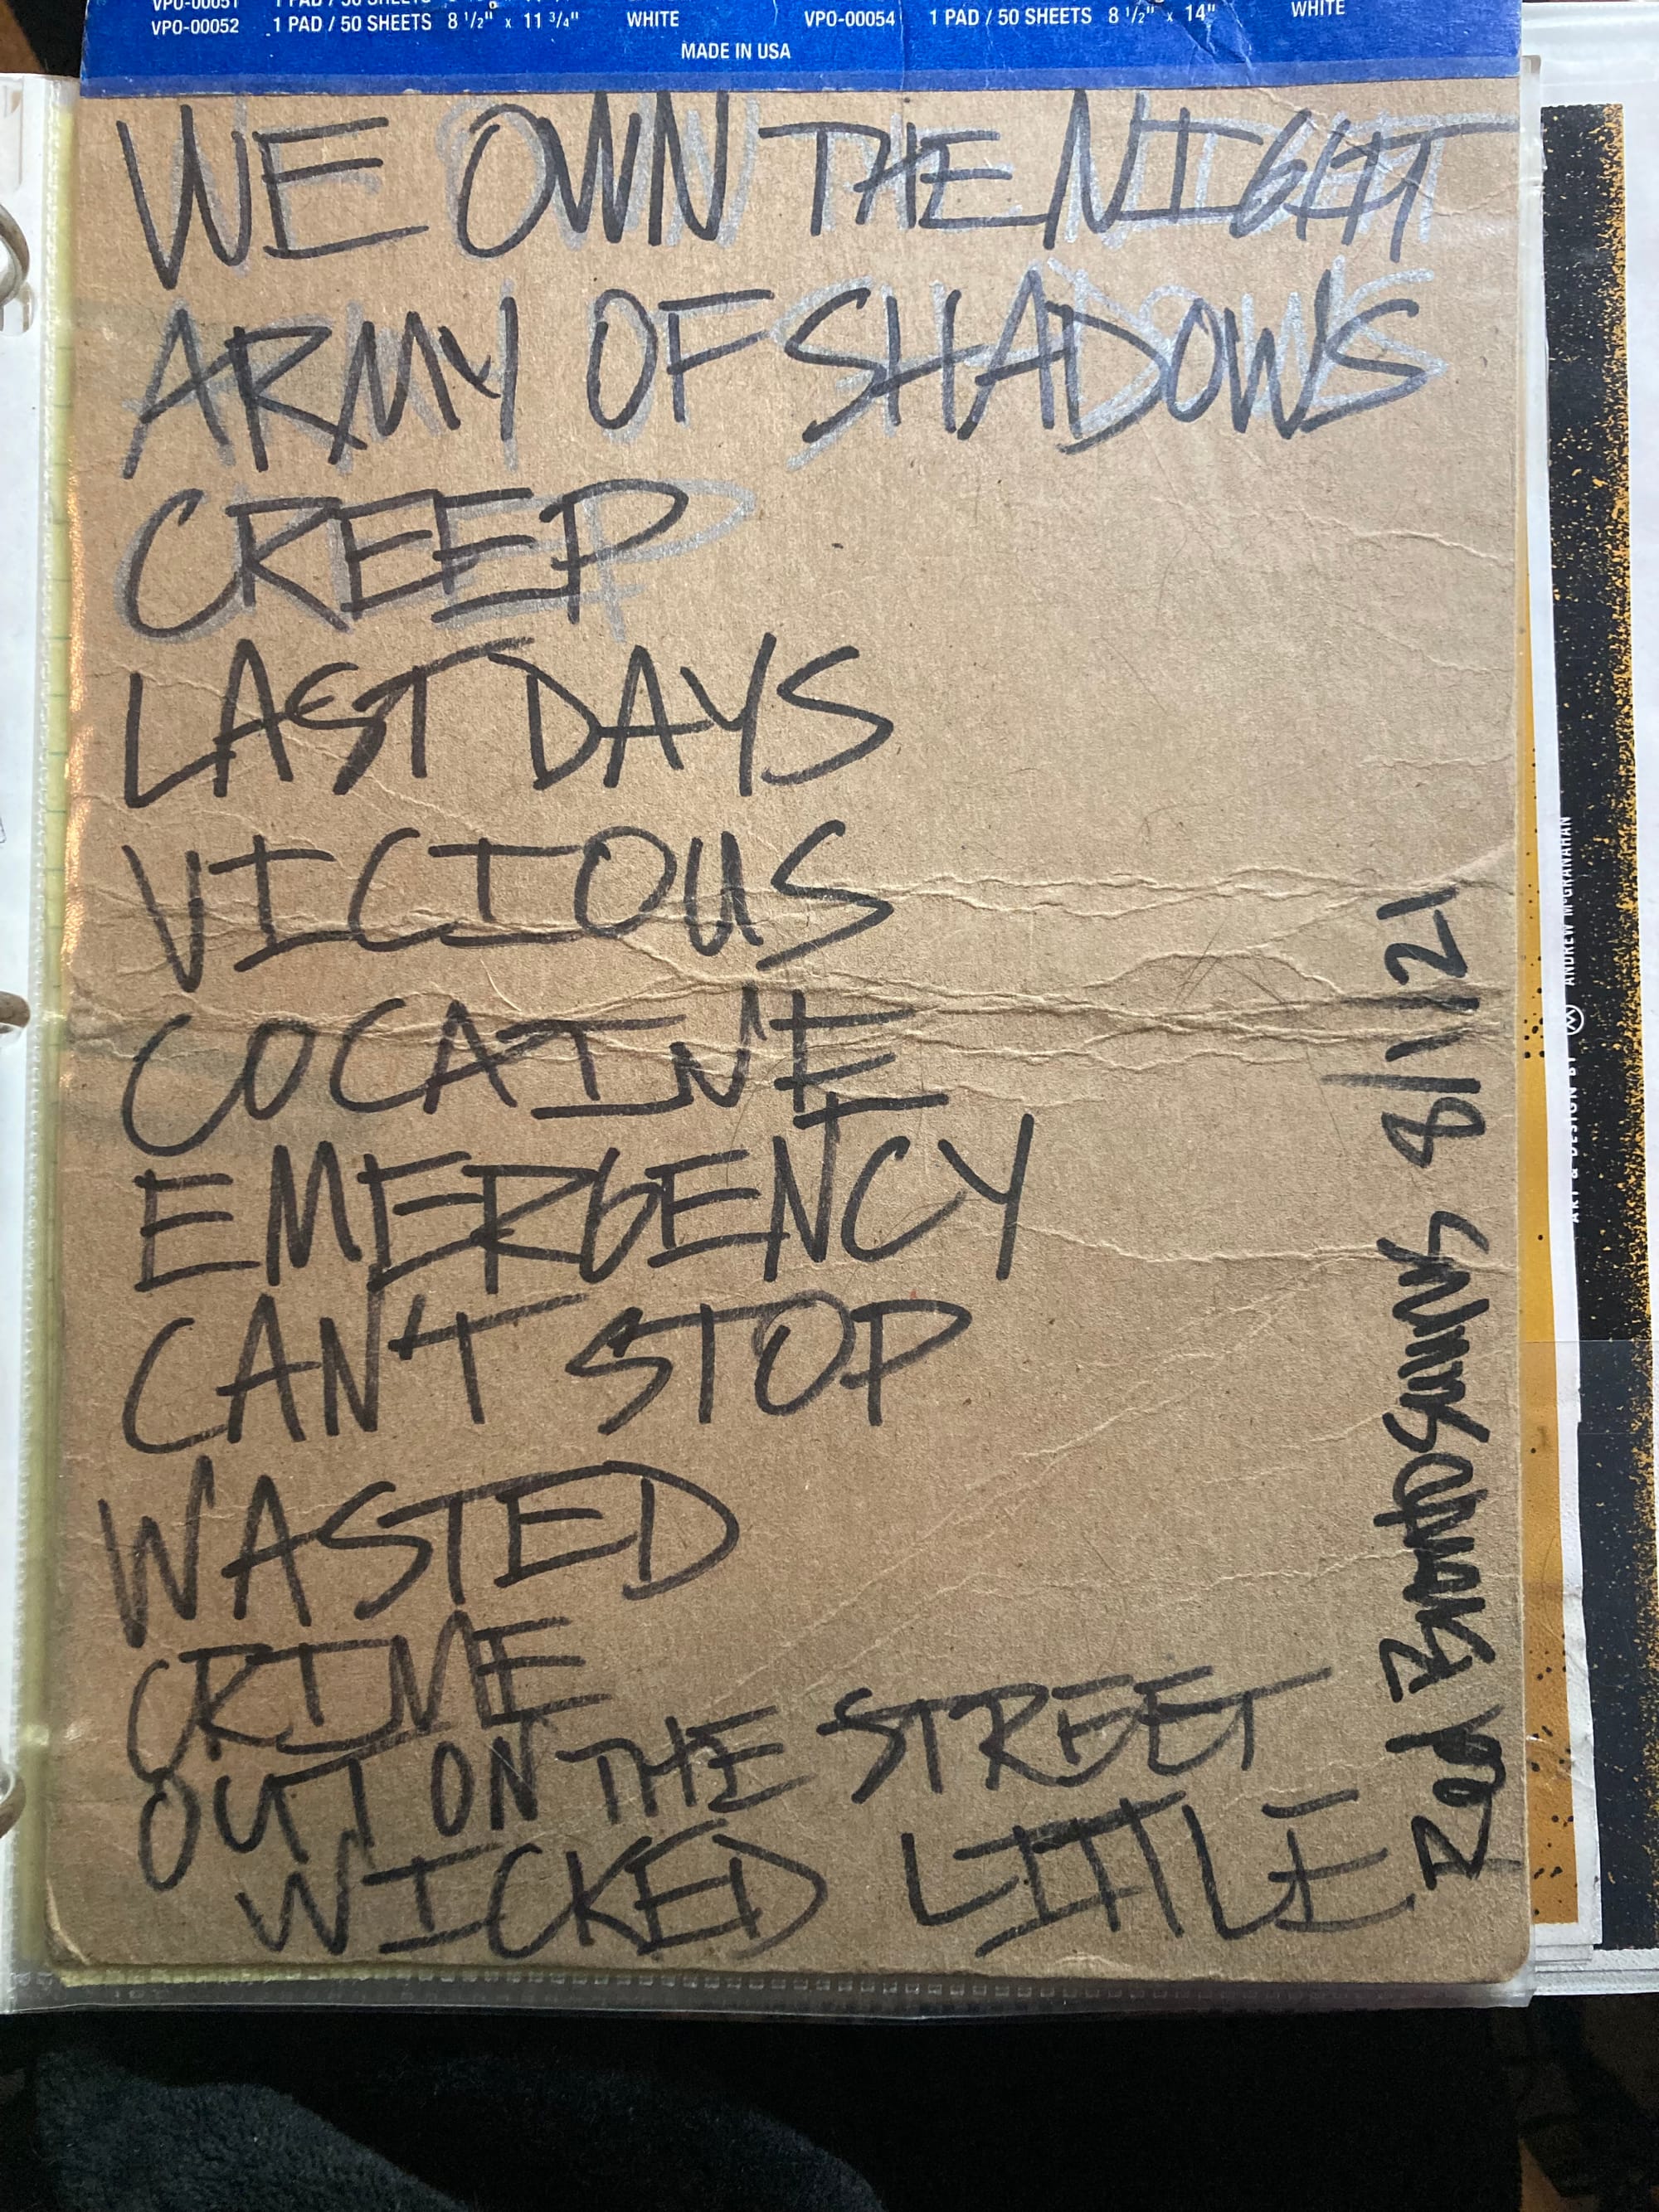 VPO-00051 1 PAD / 50 SHEETS
VPO-00052 1 PAD / 50 SHEETS 8 1/2" x 11 3/4" WHITE
VPO-00054 1 PAD / 50 SHEETS 8 1/2" x 14" WHITE
MADE IN USA
WE OWN THE NIGHT
ARMY OF SHADOWS
CREEP
LAST DAYS
VICIOUS
COCAINE
EMERGENCY
CAN'T STOP
WASTED
CRIME
OUT ON THE STREET
WICKED LITTLE
8/1/21
ART & DESIGN BY ANDREW McGRANAHAN